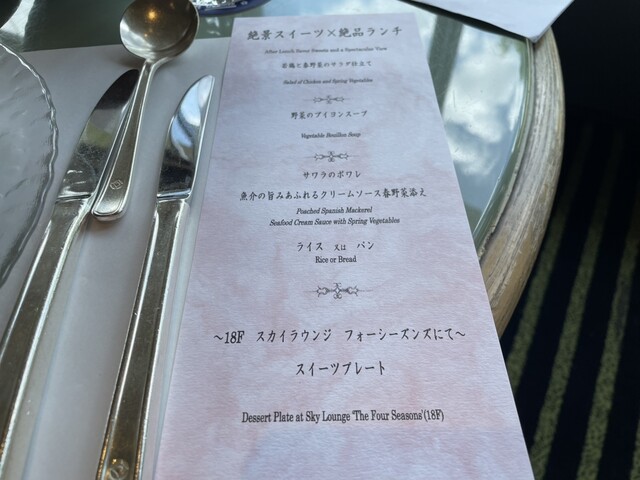 絶景スイーツ×絶品ランチ
After Lunch Some Sweets and a Spectacular View
若鶏と春野菜のサラダ仕立て
Salad of Chicken and Spring Vegetables
野菜のブイヨンスープ
Vegetable Bouillon Soup
サワラのポワレ
魚介の旨みあふれるクリームソース春野菜添え
Poached Spanish Mackerel
Seafood Cream Sauce with Spring Vegetables
ライス 又は パン
Rice or Bread
～18F スカイラウンジ フォーシーズンズにて～
スイーツプレート
Dessert Plate at Sky Lounge 'The Four Seasons'(18F)